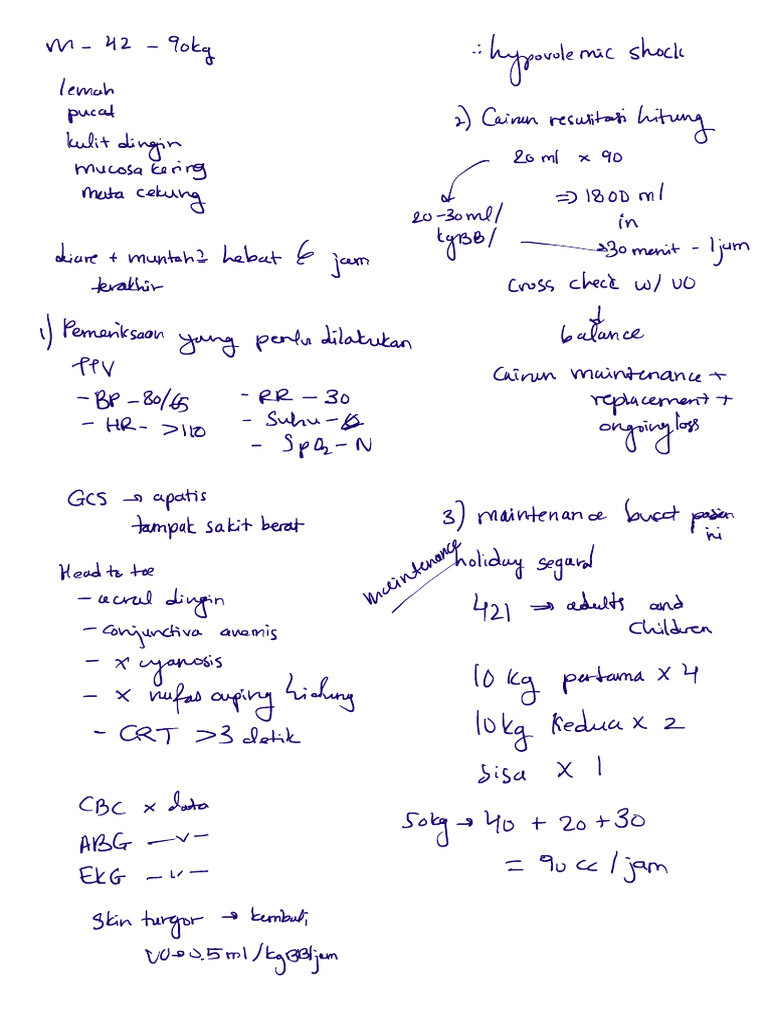 M - 42 - 90kg
lemah
pucat
kulit dingin
mucosa kering
mata cekung
diare + muntah2 hebat 6 jam
terakhir
1) Pemeriksaan yang perlu dilakukan
TTV
- BP - 80/65
- HR - >110
- RR - 30
- Suhu -
- SpO2 - N
GCS → apatis
tampak sakit berat
Head to toe
- acral dingin
- conjunctiva anemis
- x cyanosis
- x nafas cuping hidung
- CRT >3 detik
CBC x data
ABG - " -
EKG - " -
Skin turgor → kembali
UO → 0.5 ml/kgBB/jam
∴ hypovolemic shock
2) Cairan resusitasi hitung
20 ml x 90
20-30ml/
kgBB/
⇒ 1800 ml
in
30 menit - 1jam
cross check w/ UO
balance
Cairan maintenance +
replacement +
ongoing loss
3) maintenance buat pasien
ini
maintenance
holiday segard
421 → adults and
children
10 kg pertama x 4
10kg kedua x 2
sisa x 1
50kg → 40 + 20 + 30
= 90 cc / jam